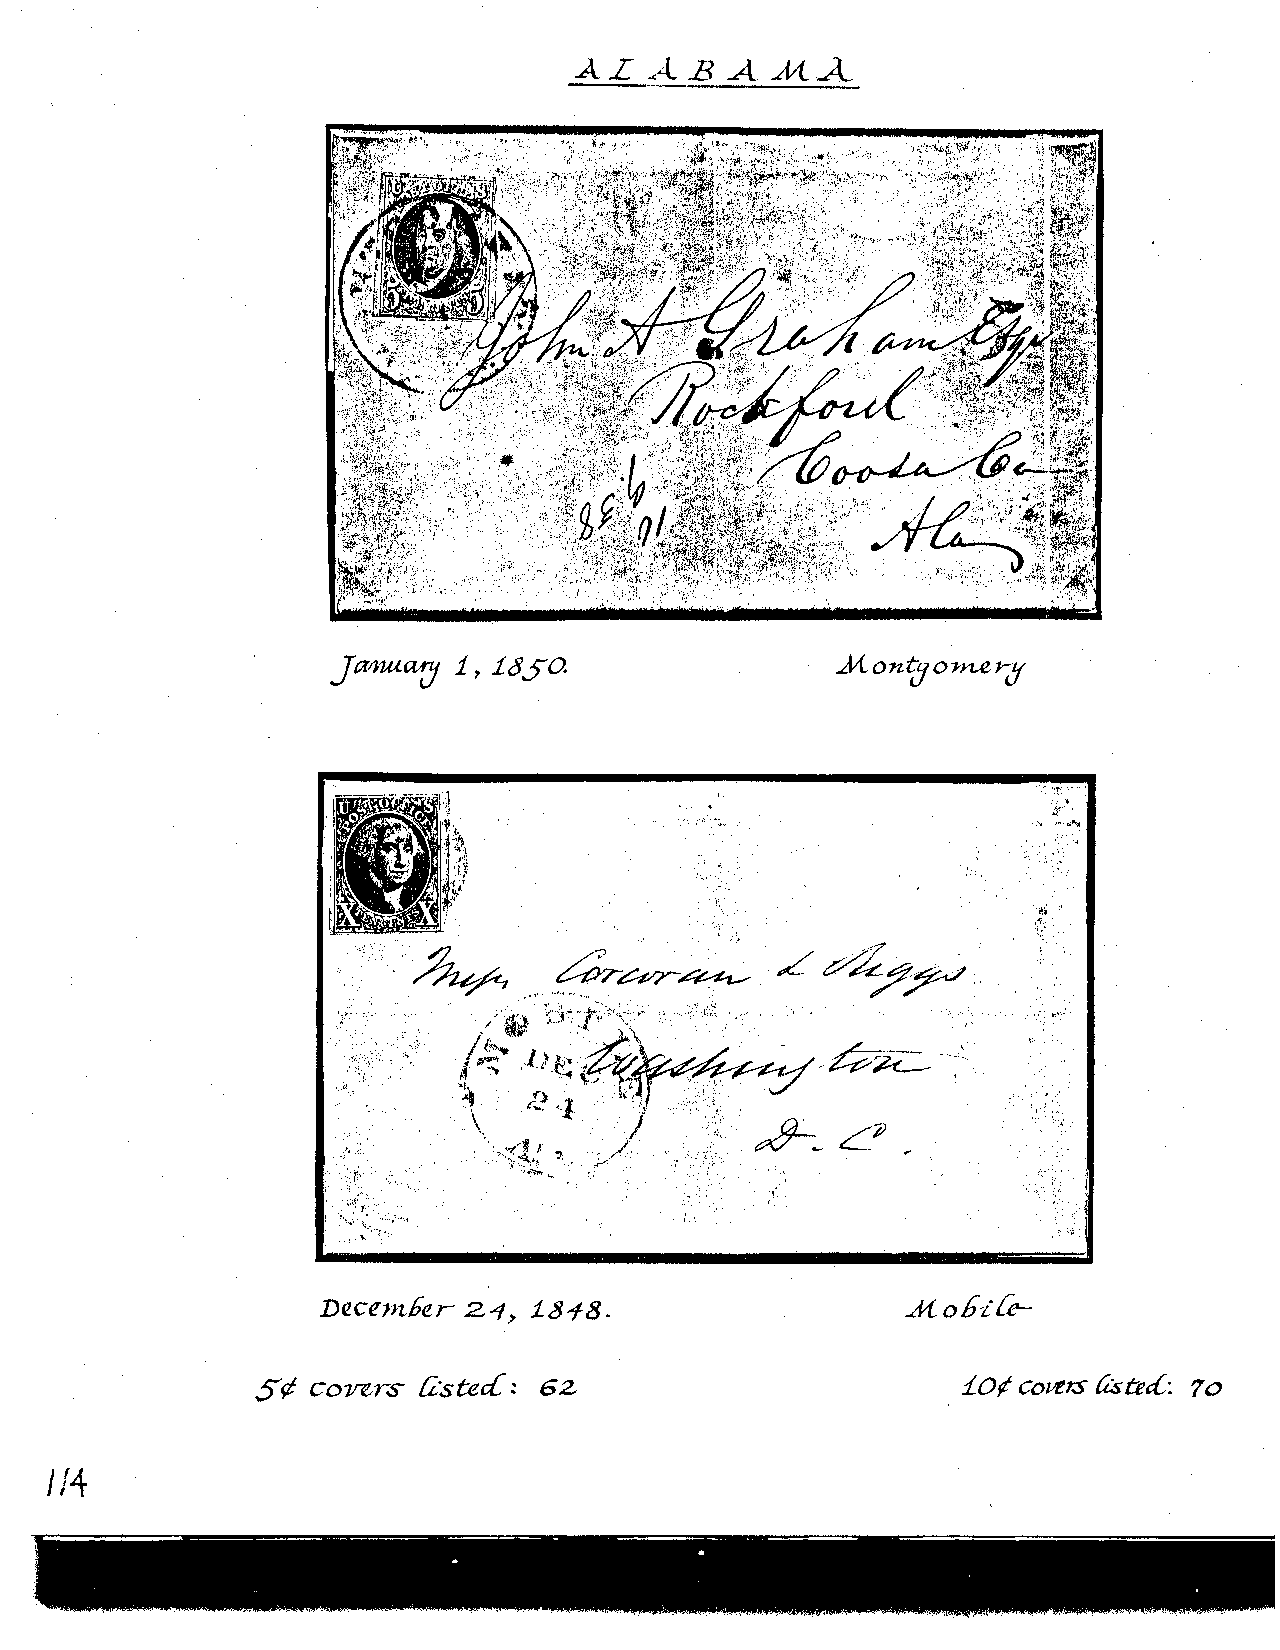 ALABAMA
John A Graham Esqr
Rockford
Coosa Co
Ala
January 1, 1850.
Montgomery
U S
POST OFFICE
X X
Messrs Corcoran & Riggs
Washington
D. C.
MOBI
DEC
24
December 24, 1848.
Mobile
5¢ covers listed: 62
10¢ covers listed: 70
114